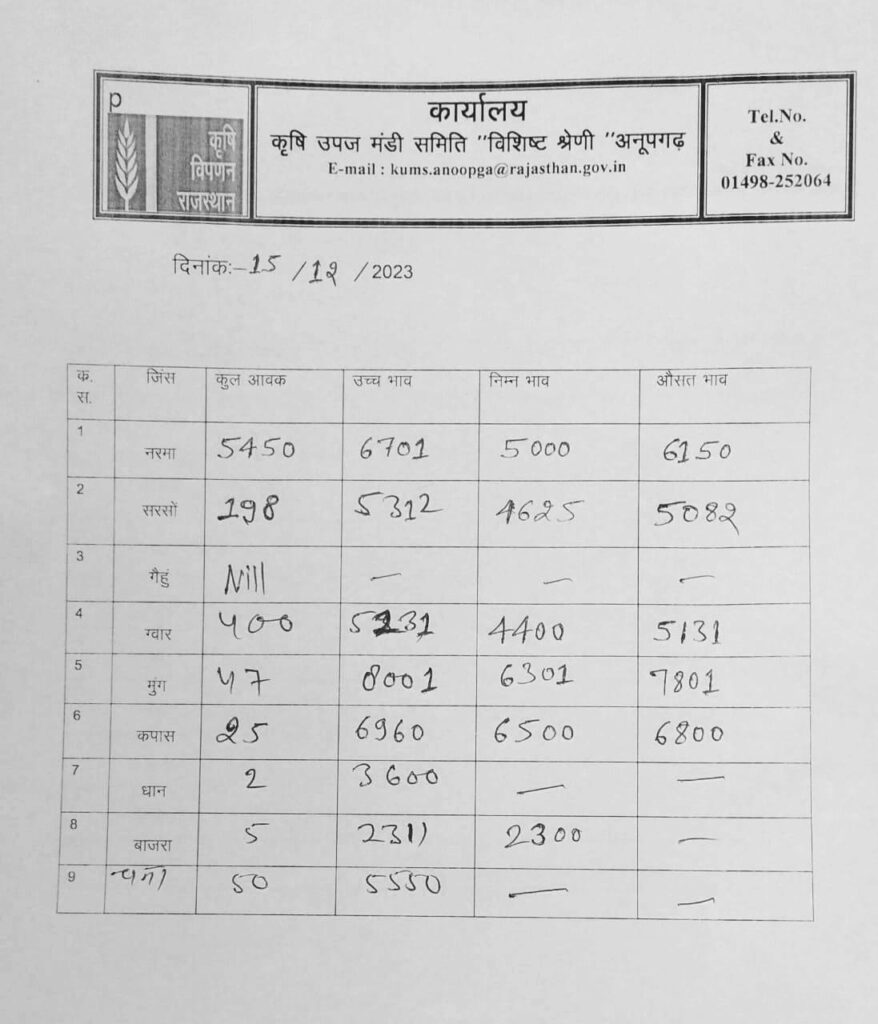 p
कृषि
विपणन
राजस्थान
कार्यालय
कृषि उपज मंडी समिति "विशिष्ट श्रेणी "अनूपगढ़
E-mail : kums.anoopga@rajasthan.gov.in
Tel.No.
&
Fax No.
01498-252064
दिनांक:–15 /12 /2023
क. स. जिंस कुल आवक उच्च भाव निम्न भाव औसत भाव
1 नरमा 5450 6701 5000 6150
2 सरसों 198 5312 4625 5082
3 गैहुं Nill — — —
4 ग्वार 400 5231 4400 5131
5 मुंग 47 8001 6301 7801
6 कपास 25 6960 6500 6800
7 धान 2 3600 — —
8 बाजरा 5 2311 2300 —
9 चना 50 5550 — —